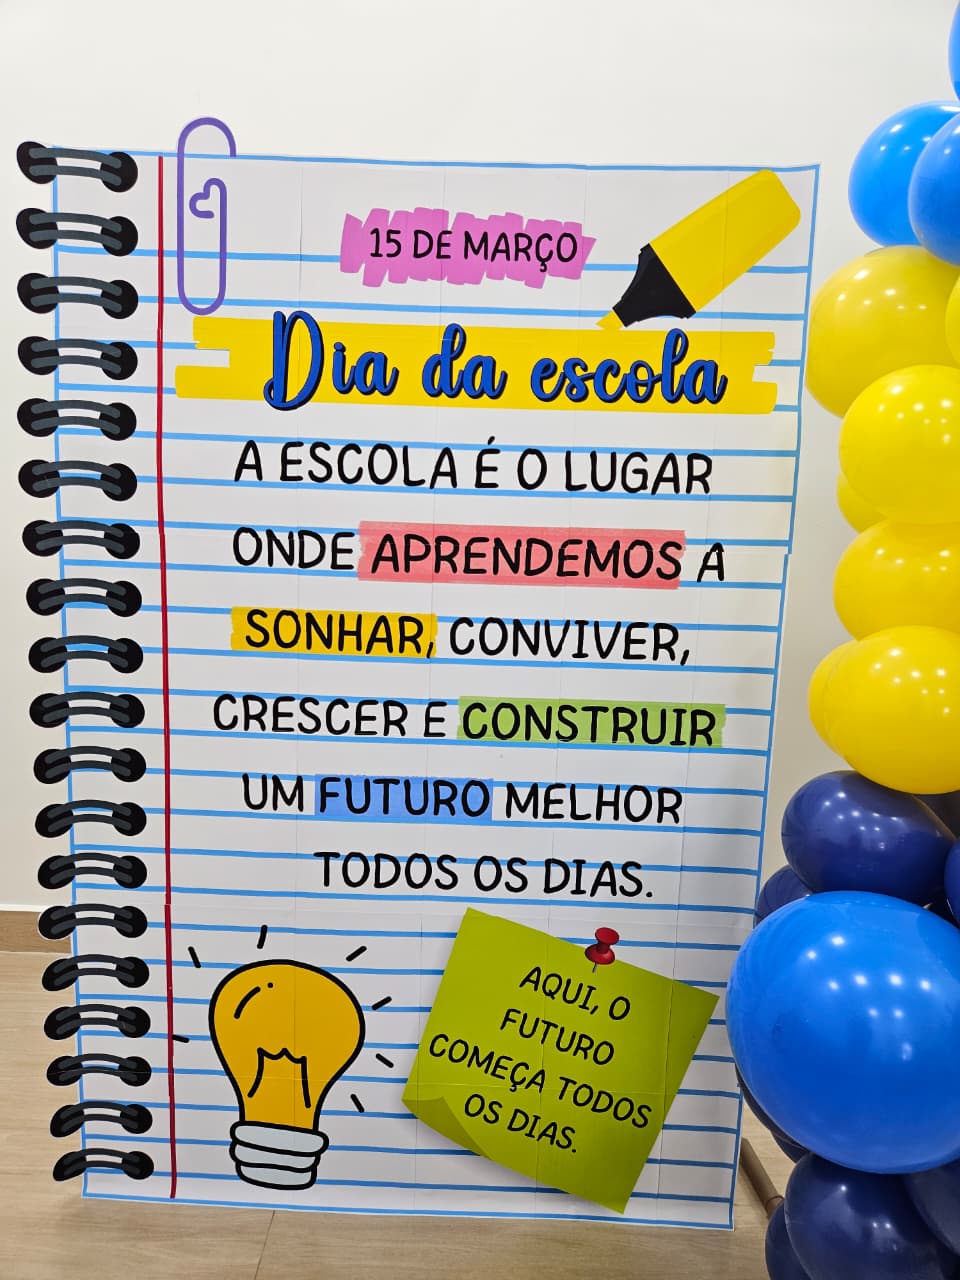 15 DE MARÇO
Dia da escola
A ESCOLA É O LUGAR
ONDE APRENDEMOS A
SONHAR, CONVIVER,
CRESCER E CONSTRUIR
UM FUTURO MELHOR
TODOS OS DIAS.
AQUI, O
FUTURO
COMEÇA TODOS
OS DIAS.